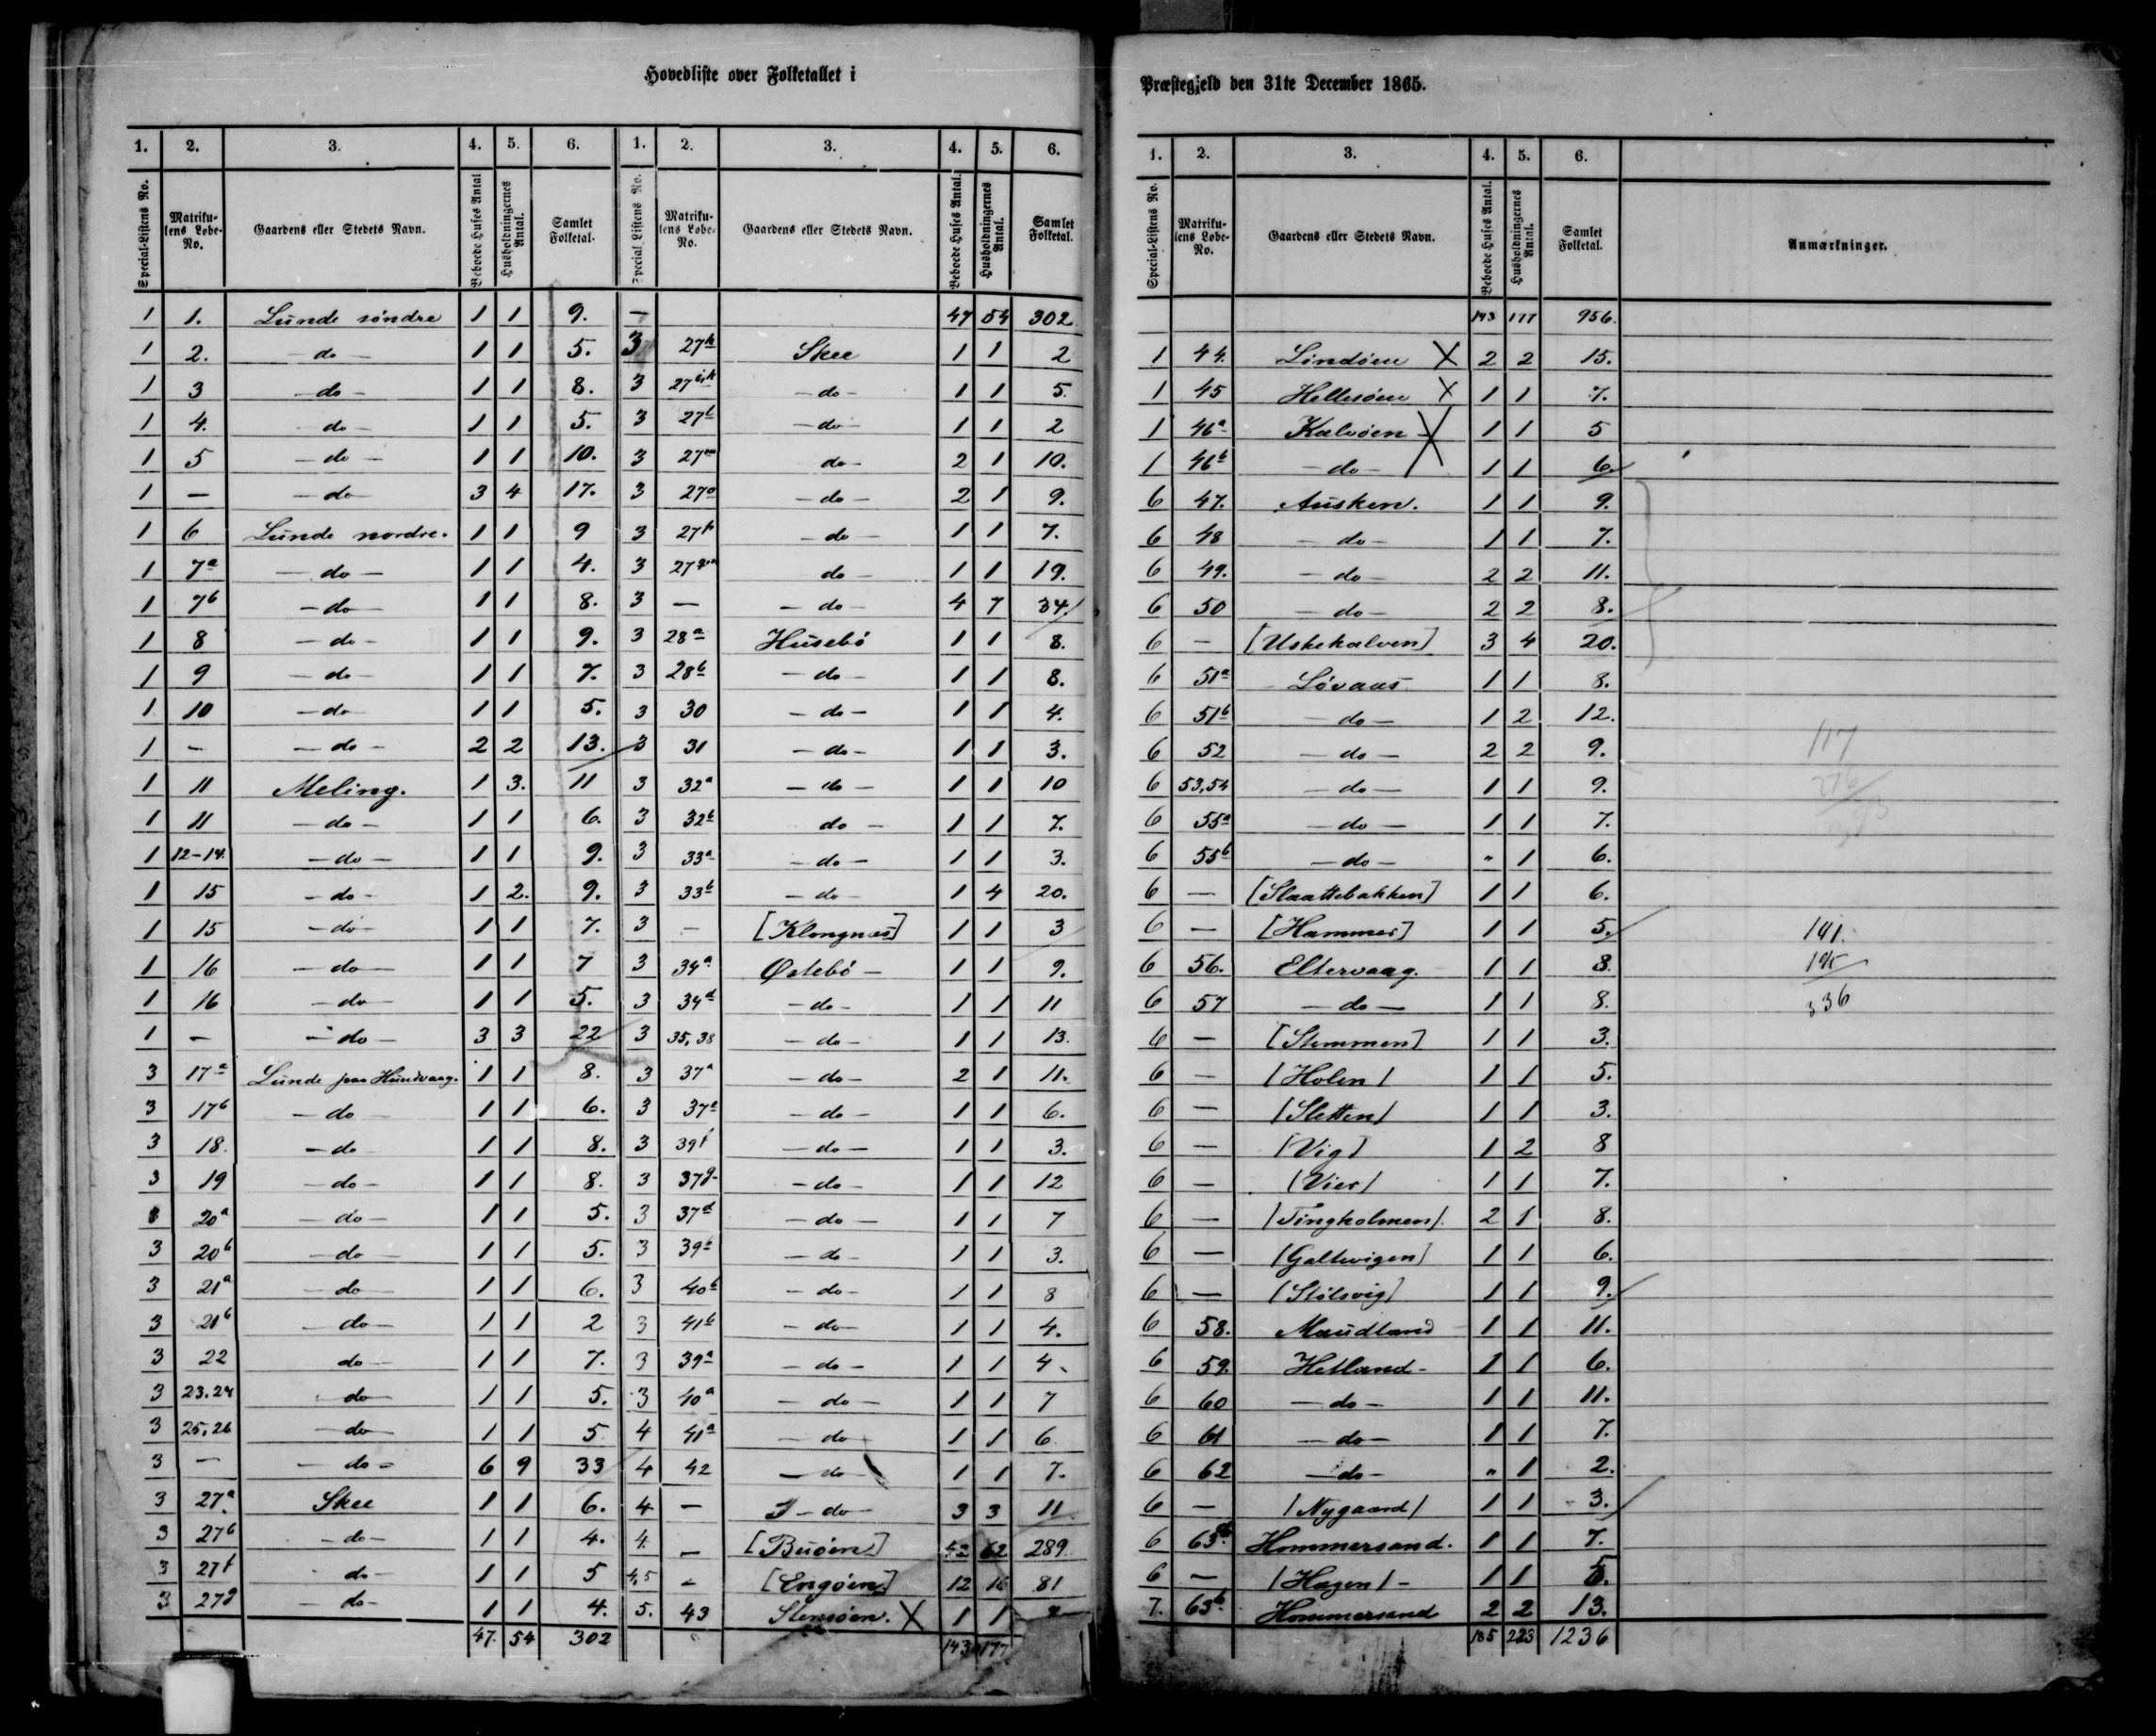 Hovedliste over Folketallet i
1. 2. 3. 4. 5. 6. 1. 2. 3. 4. 5. 6.
Special-Listens No. Matrikulens Løbe-No. Gaardens eller Stedets Navn. Beboede Huses Antal Husholdningernes Antal. Samlet Folketal. Special Listens No. Matrikulens Løbe-No. Gaardens eller Stedets Navn. Beboede Huses Antal. Husholdningernes Antal. Samlet Folketal.
1 1. Lunde søndre 1 1 9. — 47 54 302
1 2. - do - 1 1 5. 3 27h Skee 1 1 2
1 3 - do - 1 1 8. 3 27i,k - do - 1 1 5.
1 4. - do - 1 1 5. 3 27l - do - 1 1 2
1 5 - do - 1 1 10. 3 27m do - 2 1 10.
1 — - do - 3 4 17. 3 27o - do - 2 1 9.
1 6 Lunde nordre. 1 1 9 3 27p - do - 1 1 7.
1 7a - do - 1 1 4. 3 27 do - 1 1 19.
1 7b - do - 1 1 8. 3 — - do - 4 7 34.
1 8 - do - 1 1 9. 3 28a Husebø 1 1 8.
1 9 - do - 1 1 7. 3 28b - do - 1 1 8.
1 10 - do 1 1 5. 3 30 - do - 1 1 4.
1 - - do - 2 2 13. 3 31 - do - 1 1 3.
1 11 Meling. 1 3. 11 3 32a - do - 1 1 10
1 11 - do - 1 1 6. 3 32b do - 1 1 7.
1 12-14. - do - 1 1 9. 3 33a - do - 1 1 3.
1 15 - do - 1 2. 9. 3 33b - do - 1 4 20.
1 15 - do - 1 1 7. 3 - [Klongnæs] 1 1 3
1 16 - do - 1 1 7 3 34a Østebø - 1 1 9.
1 16 - do - 1 1 5. 3 34d - do - 1 1 11
1 - - do - 3 3 22 3 35,38 - do - 1 1 13.
3 17a Lunde paa Hundvaag. 1 1 8. 3 37a - do - 2 1 11.
3 17b - do 1 1 6. 3 37e - do - 1 1 6.
3 18. - do 1 1 8. 3 39f - do - 1 1 3.
3 19 - do - 1 1 8. 3 37g - do - 1 1 12
3 20a - do - 1 1 5. 3 37d - do - 1 1 7
3 20b - do 1 1 5. 3 39c - do - 1 1 3.
3 21a - do 1 1 6. 3 40b - do - 1 1 8
3 21b - do - 1 1 2 3 41b - do - 1 1 4.
3 22 do - 1 1 7. 3 39a - do - 1 1 4.
3 23,24 do 1 1 5. 3 40a - do - 1 1 7
3 25,26 - do 1 1 5 4 41a - do 1 1 6
3 - - do - 6 9 33 4 42 - do - 1 1 7.
3 27a Skee 1 1 6. 4 - - do - 3 3 11
3 27b - do - 1 1 4. 4. - [Buøen] 42 62 289.
3 27f do - 1 1 5 4,5 - [Engøen] 12 16 81
3 27g - do - 1 1 4. 5. 43 Stensøen. X 1 1
47. 54 302 143 177
Præstegjeld den 31te December 1865.
1. 2. 3. 4. 5. 6.
Special-Listens No. Matrikulens Løbe-No. Gaardens eller Stedets Navn. Beboede Huses Antal. Husholdningernes Antal. Samlet Folketal. Anmærkninger.
143 177 956.
1 44. Lindøen X 2 2 15.
1 45 Hellesøen X 1 1 7.
1 46a Kalvøen X 1 1 5
1 46b - do - 1 1 6.
6 47. Ausken. 1 1 9.
6 48 - do - 1 1 7.
6 49. - do - 2 2 11.
6 50 - do - 2 2 8.
6 - [Uskekalven] 3 4 20.
6 51a Løvaas 1 1 8.
6 51b - do - 1 2 12.
6 52 - do - 2 2 9. 117
6 53,54 - do - 1 1 9. 276
6 55a - do - 1 1 7.
6 55b - do - " 1 6.
6 — [Slaattebakken] 1 1 6.
6 — [Hammer] 1 1 5. 141.
6 56. Eltervaag. 1 1 8. 195
6 57 - do - 1 1 8. 336
6 - [Stemmen] 1 1 3.
6 - [Holen] 1 1 5.
6 — [Sletten] 1 1 3.
6 - [Vig] 1 2 8
6 — [Vier] 1 1 7.
6 — [Tingholmen]. 2 1 8.
6 — [Galtevigen] 1 1 6.
6 — [Stølsvig] 1 1 9.
6 58. Maudland 1 1 11.
6 59. Hetland - 1 1 6.
6 60 - do - 1 1 11.
6 61 - do - 1 1 7.
6 62 - do - " 1 2.
6 - [Nygaard] 1 1 3.
6 63a. Hommersand. 1 1 7.
6 - [Hagen] - 1 1 5.
7. 63b. Hommersand 2 2 13.
185 223 1236